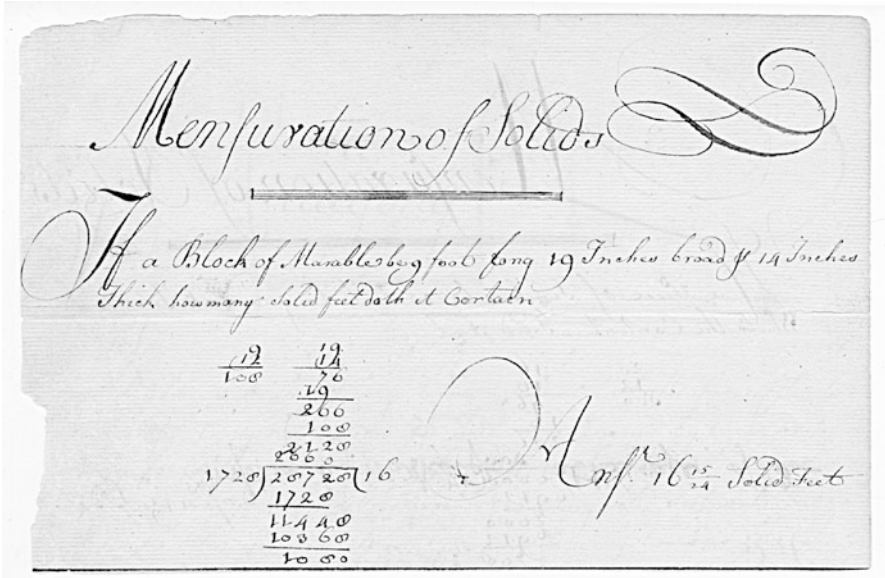 Mensuration of Solids
If a Block of Marable be 9 foot long 19 Inches broad & 14 Inches
Thick how many Solid feet doth it Contain
9 19
12 14
108 76
19
266
108
2128
2660
1728)28728(16
1728
11448
10368
1080
Ansr 16 15/24 Solid Feet